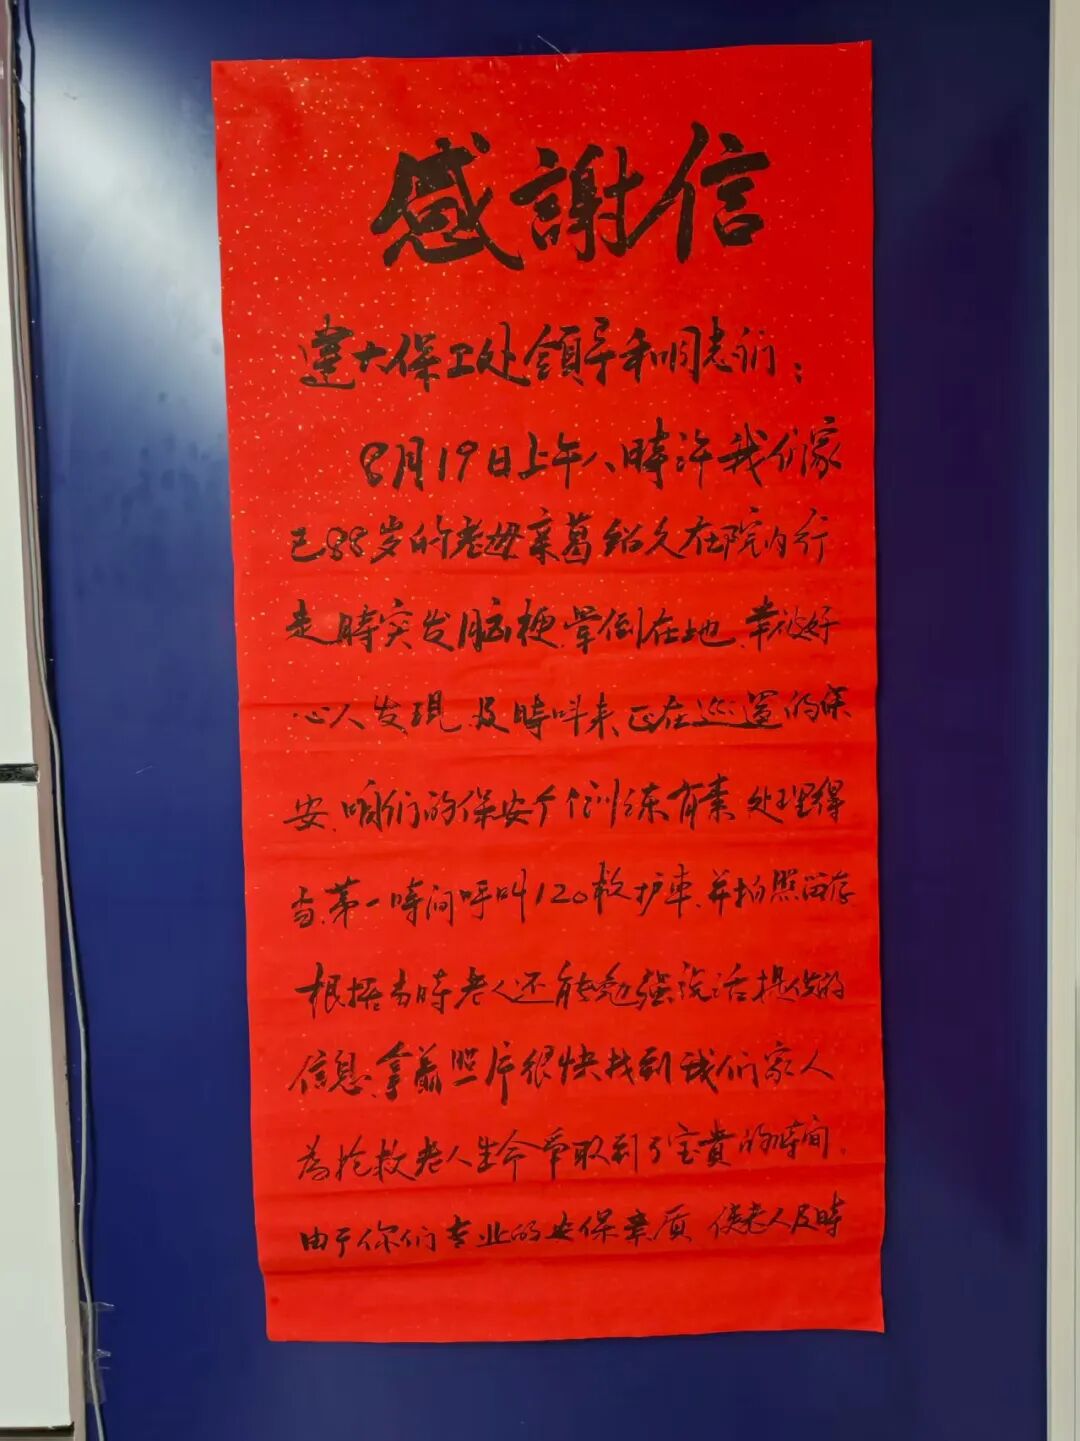 感謝信
建大保卫处領导和同志们：
8月19日上午八時许我们家
已88岁的老母亲葛绍久在院内行
走時突发脑梗.晕倒在地.幸被好
心人发現.及時叫来正在巡邏的保
安.咱们的保安个个训练有素.处理得
当.第一時间呼叫120救护車.并拍照留存
根据当時老人还能勉强说话提供的
信息.拿着照片很快找到我们家人
為抢救老人生命争取到了宝贵的時间.
由于你们专业的安保素质 使老人及時